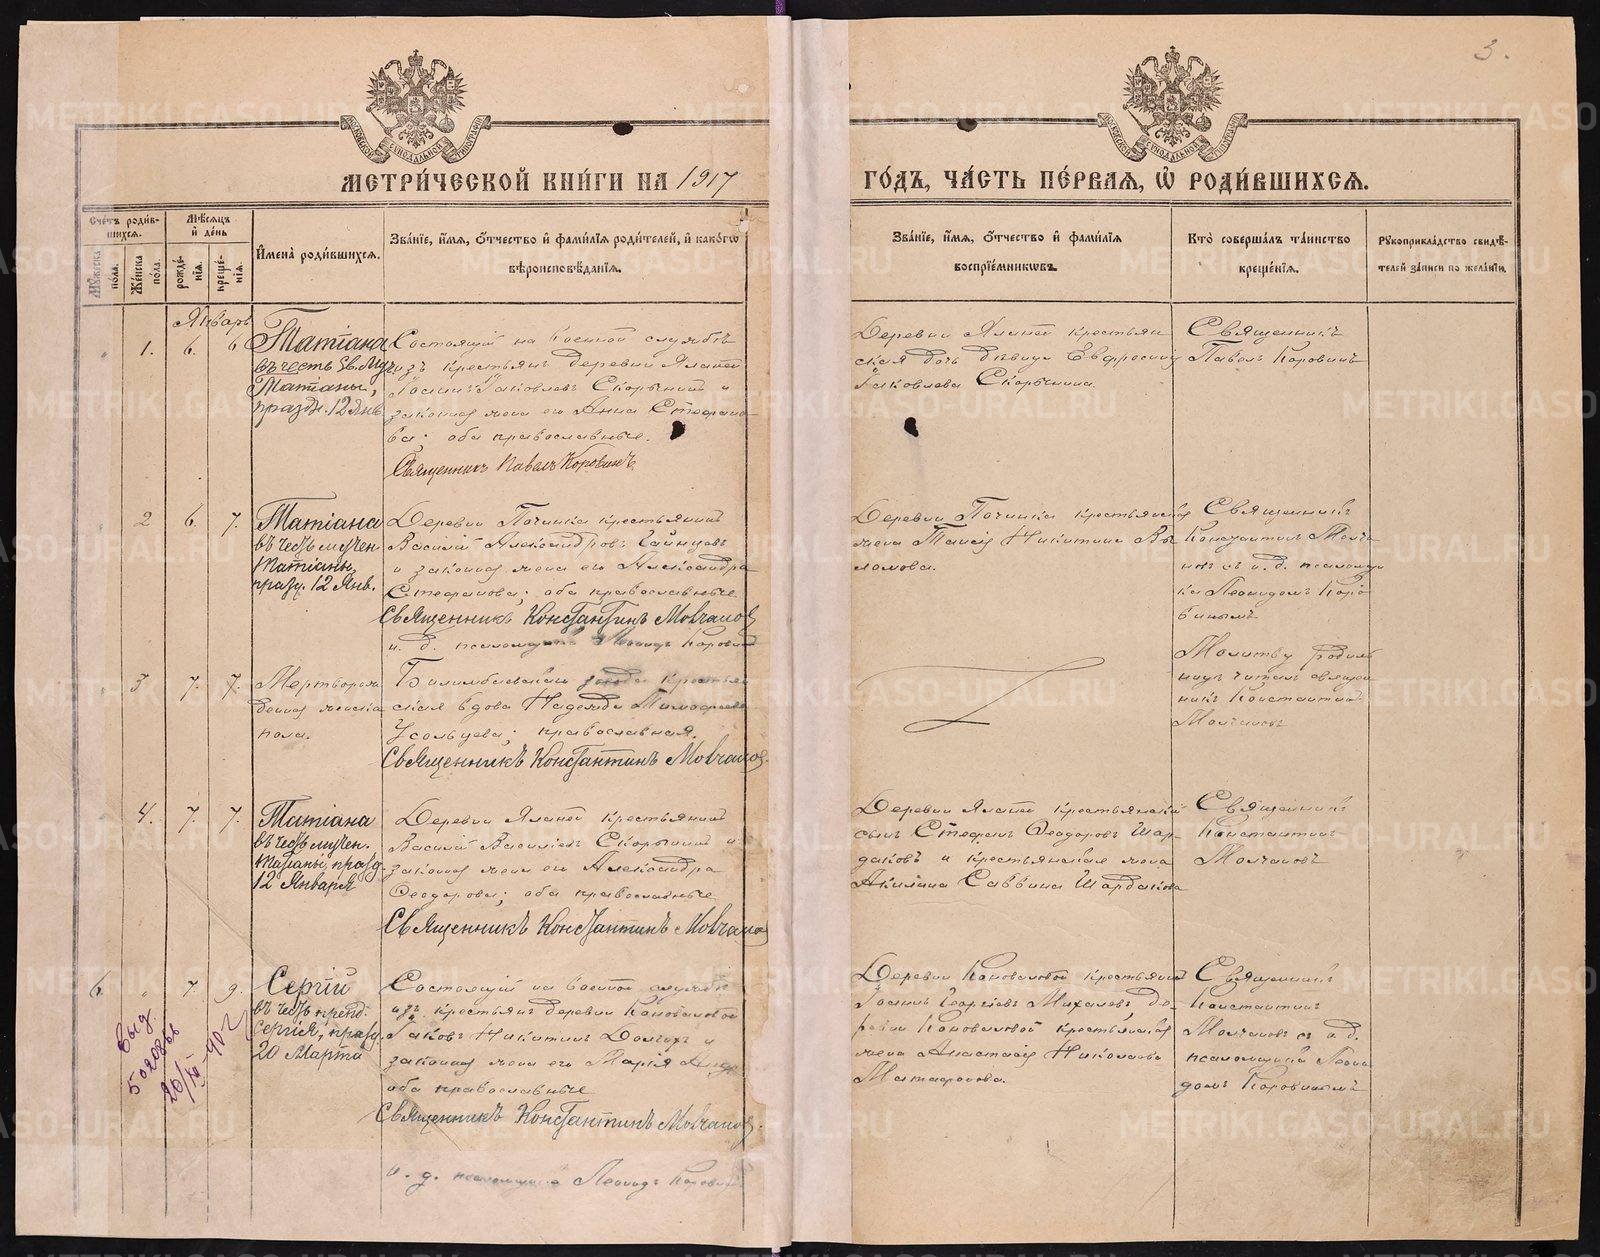 3.
МОСКОВСКОЙ СѴНОДАЛЬНОЙ ТИПОГРАФІИ
МОСКОВСКОЙ СѴНОДАЛЬНОЙ ТИПОГРАФІИ
МЕТРИ́ЧЕСКОЙ КНИ́ГИ НА 1917
ГО́ДЪ, ЧА́СТЬ ПЕ́РВАѦ, Ѡ҆ РОДИ́ВШИХСѦ.
Сче́тъ роди́в-
шихсѧ.
Мꙋ́жеска по́ла.
Же́нска по́ла.
Мѣ́сѧцъ
и҆ де́нь
рожде́-
нїѧ.
креще́-
нїѧ.
И҆мена̀ роди́вшихсѧ.
Зва́нїе, и҆́мѧ, ѻ҆́тчество и҆ фами́лїѧ роди́телей, и҆ како́гѡ
вѣроисповѣ́данїѧ.
Зва́нїе, и҆́мѧ, ѻ҆́тчество и҆ фами́лїѧ
воспрїе́мникѡвъ.
Кто̀ соверша́лъ та́инство
креще́нїѧ.
Рꙋкоприкла́дство свидѣ́-
телей за́писи по жела́нїю.
Январь
1. 6. 6
Татіана
въ честь Св. Муч.
Татіаны,
праздн. 12 Янв.
Состоящій на военной службѣ
изъ крестьянъ деревни Яланей
Іаковлевъ Скорынинъ и
законная жена его Анна Стефано-
ва; оба православные.
Священникъ Павелъ Коровинъ
Деревни Яланей крестьян
ская дочь дѣвица Евфросинія
Іаковлева Скорынина.
Священникъ
Павелъ Коровинъ
2 6. 7.
Татіана
въ честь мучен.
Татіаны,
празд. 12 Янв.
Деревни Починка крестьянинъ
Василій Александровъ
и законная жена его Александра
Стефанова; оба православные
Священникъ Константинъ Молчановъ
и. д. псаломщика Леонидъ Коровинъ
Деревни Починка крестьянская
жена Таисія Никитина
Священникъ
Константинъ Молча-
новъ съ и. д. псаломщи
ка Леонидомъ Коро-
винымъ
3 7. 7.
Мертворож
денная женска
пола.
Билимбаевскаго завода крестьян
ская вдова Надежда Тимофеева
Усольцева; православная.
Священникъ Константинъ Молчановъ.
Молитву родиль
ницѣ читалъ священ
никъ Константинъ
Молчановъ
4. 7. 7.
Татіана
въ честь мучен.
Татіаны, празд.
12 Января
Деревни Яланей крестьянинъ
Василій Василіевъ Скорынинъ и
законная жена его Александра
Феодорова; оба православные
Священникъ Константинъ Молчановъ
Деревни Яланей крестьянскій
сынъ Стефанъ Феодоровъ Шар-
даковъ и крестьянская жена
Акилина Саввина Шардакова
Священникъ
Константинъ
Молчановъ
6. „ 7. 9.
Сергій
въ честь преподоб.
Сергія, празд.
20 Марта
Состоящій на военной службѣ
изъ крестьянъ деревни Коноваловой
Іаковъ Никитинъ и
законная жена его Марія
оба православные
Священникъ Константинъ Молчановъ.
и. д. псаломщика Леонидъ Коровинъ
Деревни Коноваловой крестьянинъ
Георгіевъ Михалевъ де-
ревни Коноваловой крестьянская
жена Анастасія Николаева
Матафонова.
Священникъ
Константинъ
Молчановъ съ и. д.
псаломщика Леони
домъ Коровинымъ
Выд.
METRIKI.GASO-URAL.RU